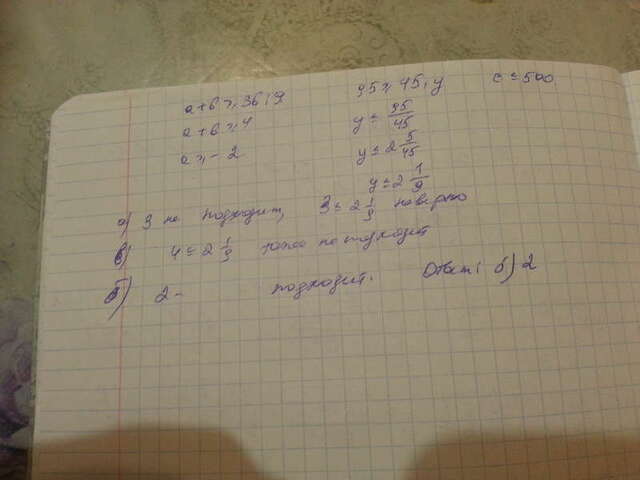 a+6 ⩾ 36:9
a+6 ⩾ 4
a ⩾ -2
95 ⩾ 45·y
y ≤ 95/45
y ≤ 2 5/45
y ≤ 2 1/9
c ≤ 500
а) 3 не подходит, 3 ≤ 2 1/9 неверно
в) 4 ≤ 2 1/9 тоже не подходит
б) 2 - подходит. Ответ: б) 2